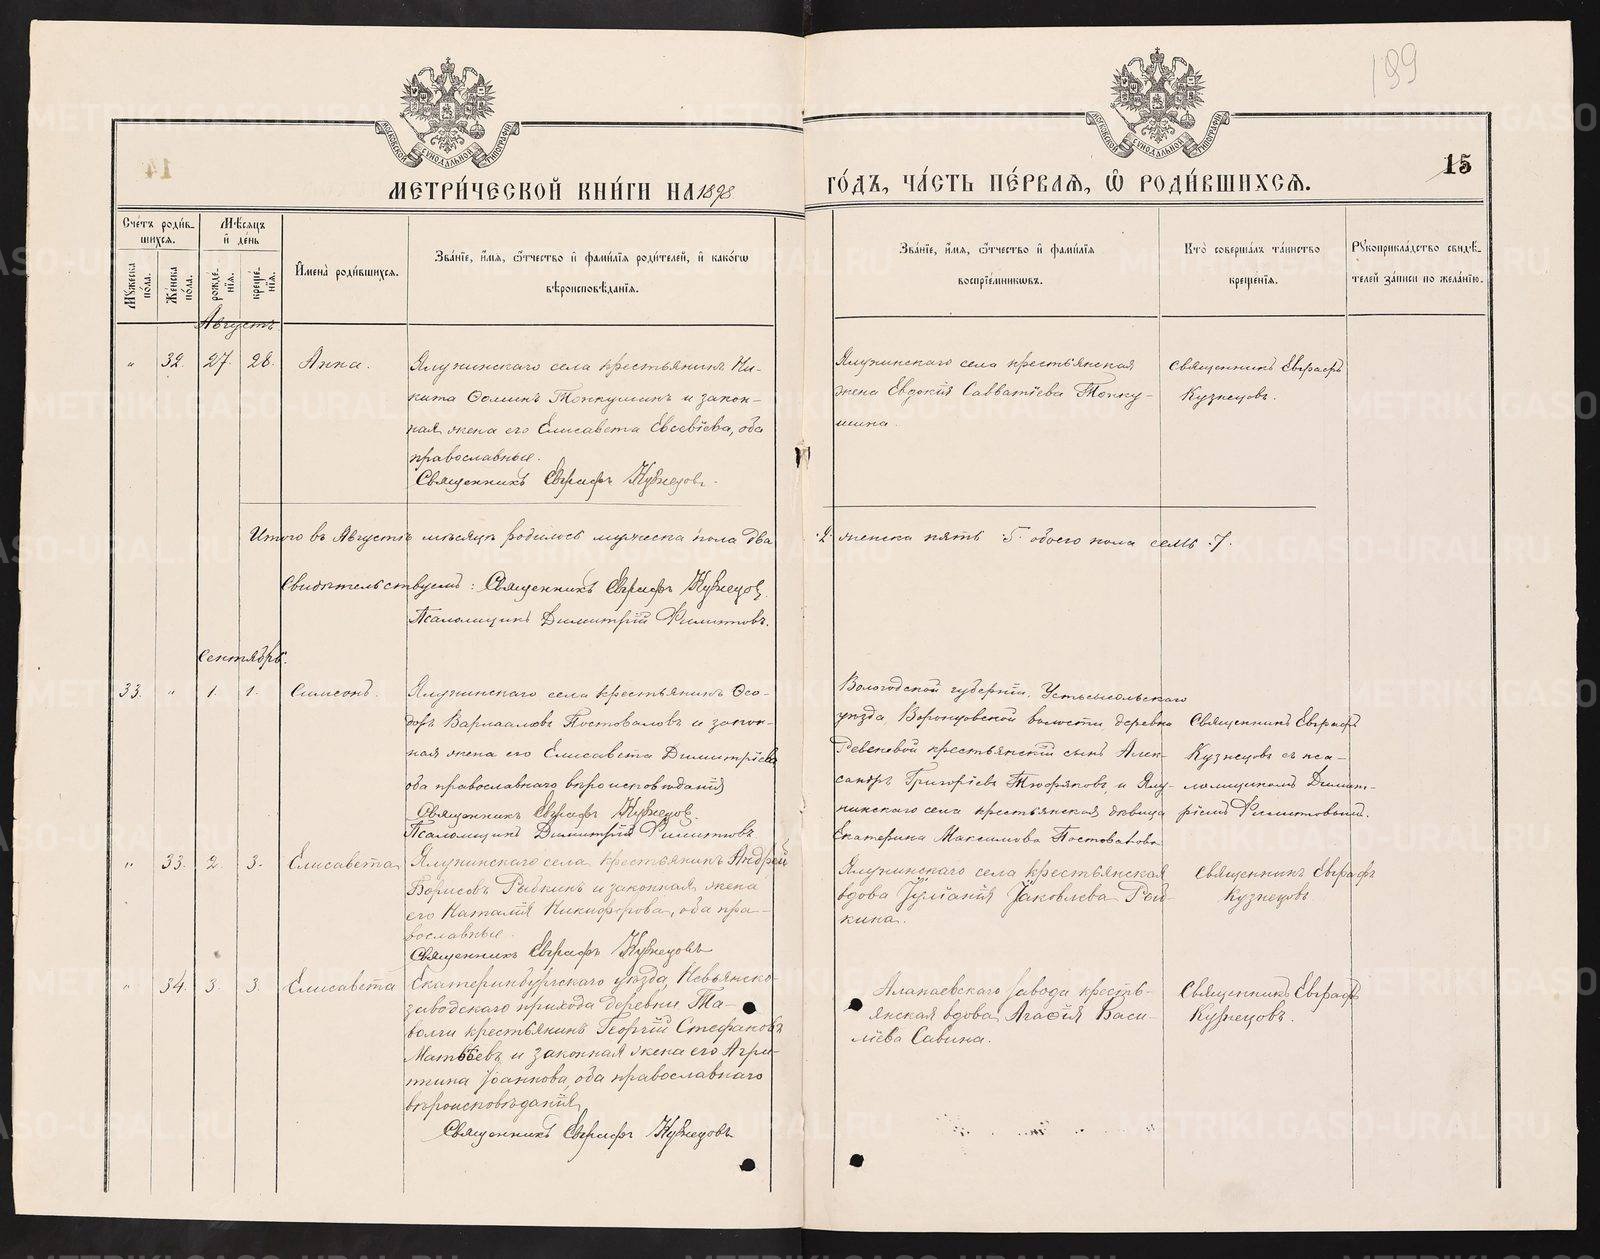 199
15
14
МОСКОВСКОЙ СѴНОДАЛЬНОЙ ТИПОГРАФІИ
МОСКОВСКОЙ СѴНОДАЛЬНОЙ ТИПОГРАФІИ
МЕТРИ́ЧЕСКОЙ КНИ́ГИ НА 1898 ГО́ДЪ, ЧА́СТЬ ПЕ́РВАѦ, Ѡ҆ РОДИ́ВШИХСѦ.
Сче́тъ роди́вшихсѧ.
Мꙋ́жеска по́ла.
Же́нска по́ла.
Мѣ́сѧцъ и҆ де́нь
рожде́нїѧ.
креще́нїѧ.
И҆мена̀ роди́вшихсѧ.
Зва́нїе, и҆́мѧ, ѻ҆́тчество и҆ фами́лїѧ роди́телей, и҆ како́гѡ
вѣроисповѣ́данїѧ.
Зва́нїе, и҆́мѧ, ѻ҆́тчество и҆ фами́лїѧ
воспрїе́мникѡвъ.
Кто̀ соверша́лъ та́инство
креще́нїѧ.
Рꙋкоприкла́дство свидѣ́-
телей за́писи по жела́нїю.
Августъ
" 32. 27. 28. Анна.
Ялунинскаго села крестьянинъ Ни-
кита Ѳоминъ Топкушинъ и закон-
ная жена его Елисавета Евсевіева, оба
православные.
Священникъ Евграфъ Кузнецовъ.
Ялунинскаго села крестьянская
жена Евдокія Савватіева Топку-
шина.
Священникъ Евграфъ
Кузнецовъ.
Итого въ Августѣ мѣсяцѣ родилось мужеска пола два .2. женска пять .5. обоего пола семь .7.
Свидѣтельствуемъ: Священникъ Евграфъ Кузнецовъ.
Псаломщикъ Димитрій Филитовъ.
Сентябрь.
33. " 1. 1. Симеонъ.
Ялунинскаго села крестьянинъ Ѳео-
доръ Варлаамовъ Постоваловъ и закон-
ная жена его Елисавета Димитріева
оба православнаго вѣроисповѣданія
Священникъ Евграфъ Кузнецовъ.
Псаломщикъ Димитрій Филитовъ
Вологодской губерніи, Устьсысольскаго
уѣзда, Воронцовской волости, деревни
крестьянскій сынъ Алек-
сандръ Григоріевъ Тюфяковъ и Ялу-
нинскаго села крестьянская дѣвица
Екатерина Максимова Постовалова
Священникъ Евграфъ
Кузнецовъ съ пса-
ломщикомъ Димит-
ріемъ Филитовымъ.
" 33. 2. 3. Елисавета
Ялунинскаго села, крестьянинъ Андрей
Борисовъ Рыбкинъ и законная жена
его Наталія Никифорова, оба пра-
вославные.
Священникъ Евграфъ Кузнецовъ
Ялунинскаго села крестьянская
вдова Іуліанія Іаковлева
кина.
Священникъ Евграфъ
Кузнецовъ
" 34. 3. 3. Елисавета
Екатеринбургскаго уѣзда, Невьянско-
заводскаго прихода деревни Та-
волги крестьянинъ Георгій Стефановъ
Матвѣевъ и законная жена его Агри-
пина Іоаннова, оба православнаго
вѣроисповѣданія
Священникъ Евграфъ Кузнецовъ
Алапаевскаго завода кресть-
янская вдова, Агаѳія Васи-
ліева Савина.
Священникъ Евграфъ
Кузнецовъ.
METRIKI.GASO-URAL.RU